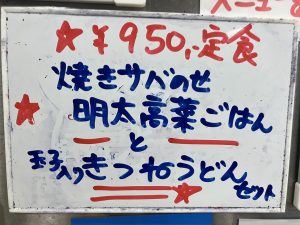 メニュー
★¥950,-定食
焼きサバのせ
★明太高菜ごはん
と
玉子入りきつねうどんセット★